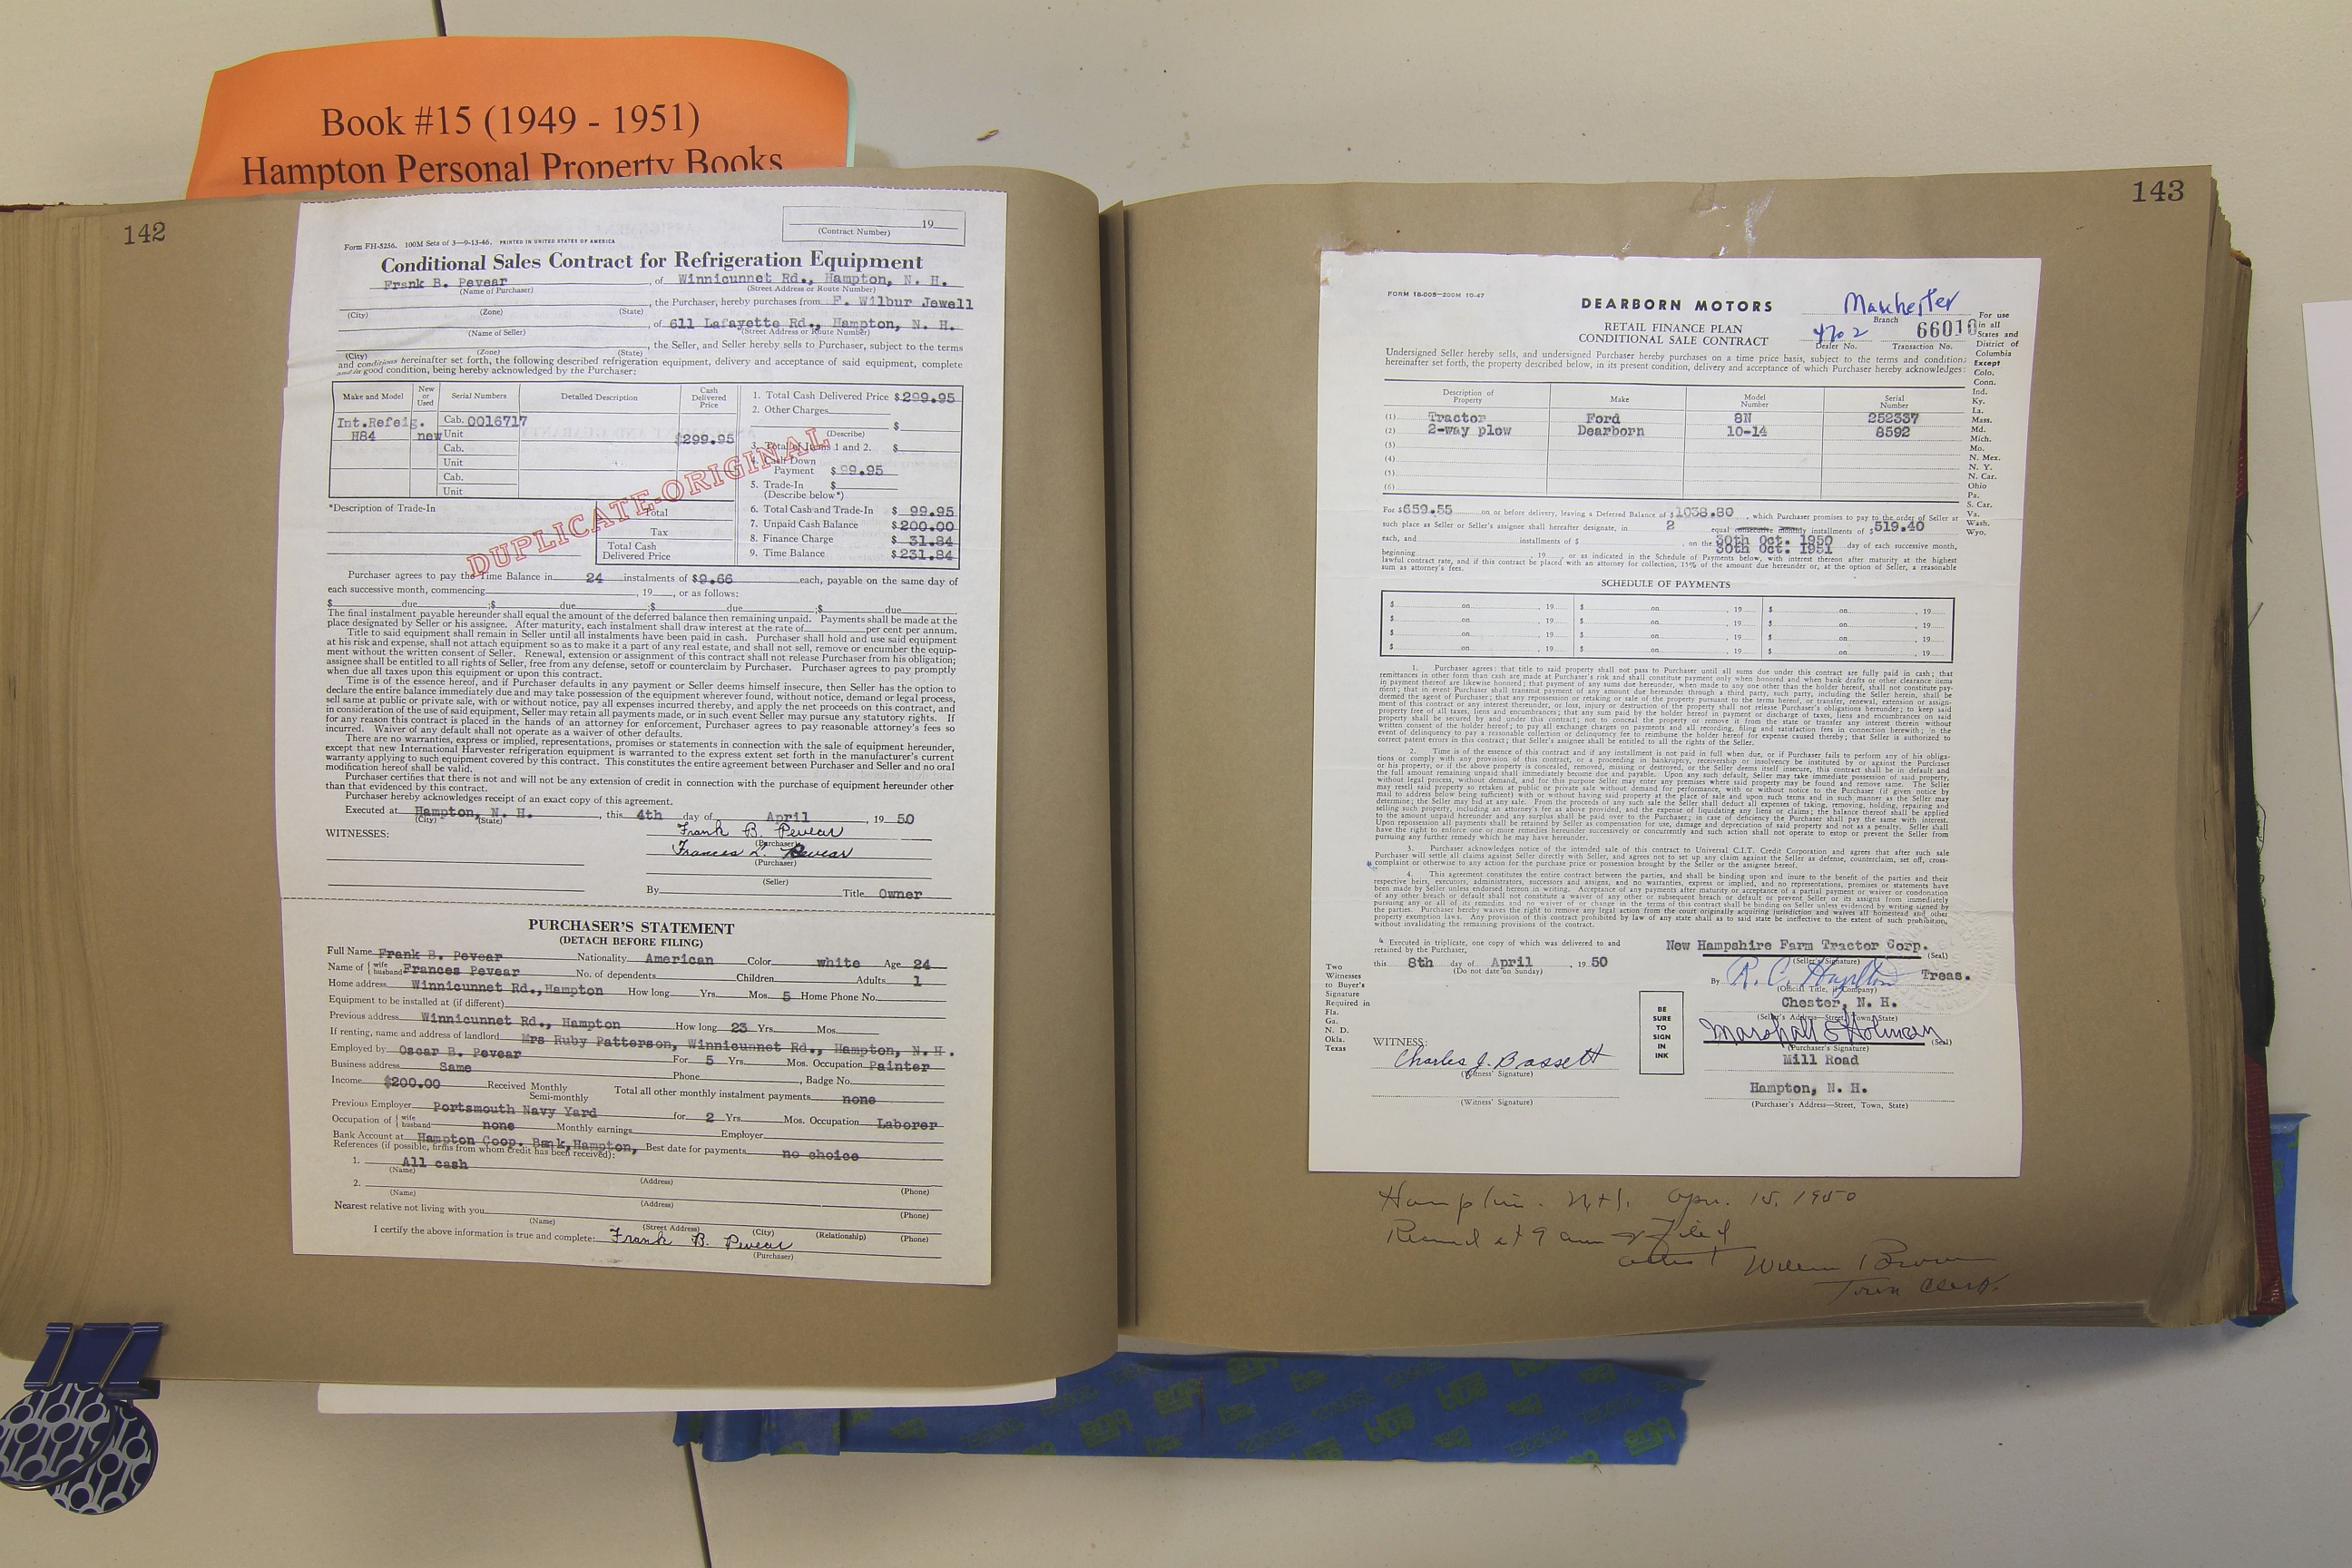 Book #15 (1949 - 1951)
Hampton Personal Property Books
142
19
(Contract Number)
Form FH-5256. 100M Sets of 3—9-13-46. PRINTED IN UNITED STATES OF AMERICA
Conditional Sales Contract for Refrigeration Equipment
Frank B. Pevear, of Winnicunnet Rd., Hampton, N. H.
(Name of Purchaser) (Street Address or Route Number)
, the Purchaser, hereby purchases from F. Wilbur Jewell
(City) (Zone) (State)
, of 611 Lafayette Rd., Hampton, N. H.
(Name of Seller) (Street Address or Route Number)
, the Seller, and Seller hereby sells to Purchaser, subject to the terms
(City) (Zone) (State)
and conditions hereinafter set forth, the following described refrigeration equipment, delivery and acceptance of said equipment, complete
and in good condition, being hereby acknowledged by the Purchaser:
Make and Model New or Used Serial Numbers Detailed Description Cash Delivered Price
Int.Refeig. H84 new Cab. 0016717 Unit $299.95
Cab.
Unit
Cab.
Unit
1. Total Cash Delivered Price $299.95
2. Other Charges
$
(Describe)
3. Total of Items 1 and 2. $
4. Cash Down Payment $ 99.95
5. Trade-In $
(Describe below*)
6. Total Cash and Trade-In $ 99.95
7. Unpaid Cash Balance $200.00
8. Finance Charge $ 31.84
9. Time Balance $231.84
DUPLICATE-ORIGINAL
*Description of Trade-In
Total
Tax
Total Cash Delivered Price
Purchaser agrees to pay the Time Balance in 24 instalments of $9.66 each, payable on the same day of
each successive month, commencing , 19 , or as follows:
$ due ;$ due ;$ due ;$ due
The final instalment payable hereunder shall equal the amount of the deferred balance then remaining unpaid. Payments shall be made at the
place designated by Seller or his assignee. After maturity, each instalment shall draw interest at the rate of per cent per annum.
Title to said equipment shall remain in Seller until all instalments have been paid in cash. Purchaser shall hold and use said equipment
at his risk and expense, shall not attach equipment so as to make it a part of any real estate, and shall not sell, remove or encumber the equip-
ment without the written consent of Seller. Renewal, extension or assignment of this contract shall not release Purchaser from his obligation;
assignee shall be entitled to all rights of Seller, free from any defense, setoff or counterclaim by Purchaser. Purchaser agrees to pay promptly
when due all taxes upon this equipment or upon this contract.
Time is of the essence hereof, and if Purchaser defaults in any payment or Seller deems himself insecure, then Seller has the option to
declare the entire balance immediately due and may take possession of the equipment wherever found, without notice, demand or legal process,
sell same at public or private sale, with or without notice, pay all expenses incurred thereby, and apply the net proceeds on this contract, and
in consideration of the use of said equipment, Seller may retain all payments made, or in such event Seller may pursue any statutory rights. If
for any reason this contract is placed in the hands of an attorney for enforcement, Purchaser agrees to pay reasonable attorney's fees so
incurred. Waiver of any default shall not operate as a waiver of other defaults.
There are no warranties, express or implied, representations, promises or statements in connection with the sale of equipment hereunder,
except that new International Harvester refrigeration equipment is warranted to the express extent set forth in the manufacturer's current
warranty applying to such equipment covered by this contract. This constitutes the entire agreement between Purchaser and Seller and no oral
modification hereof shall be valid.
Purchaser certifies that there is not and will not be any extension of credit in connection with the purchase of equipment hereunder other
than that evidenced by this contract.
Purchaser hereby acknowledges receipt of an exact copy of this agreement.
Executed at Hampton, N. H. , this 4th day of April , 19 50
(City) (State)
WITNESSES:
Frank B. Pevear
(Purchaser)
Frances L. Pevear
(Purchaser)
(Seller)
By Title Owner
PURCHASER'S STATEMENT
(DETACH BEFORE FILING)
Full Name Frank B. Pevear Nationality American Color white Age 24
Name of { wife husband Frances Pevear No. of dependents Children Adults 1
Home address Winnicunnet Rd.,Hampton How long Yrs. Mos. 5 Home Phone No.
Equipment to be installed at (if different)
Previous address Winnicunnet Rd., Hampton How long 23 Yrs. Mos.
If renting, name and address of landlord Mrs Ruby Patterson, Winnicunnet Rd., Hampton, N.H.
Employed by Oscar B. Pevear For 5 Yrs. Mos. Occupation Painter
Business address Same Phone , Badge No.
Income $200.00 Received Monthly Semi-monthly Total all other monthly instalment payments none
Previous Employer Portsmouth Navy Yard for 2 Yrs. Mos. Occupation Laborer
Occupation of { wife husband none Monthly earnings Employer
Bank Account at Hampton Coop. Bank,Hampton, Best date for payments no choice
References (if possible, firms from whom credit has been received):
1. All cash
(Name) (Address) (Phone)
2.
(Name) (Address) (Phone)
Nearest relative not living with you
(Name) (Street Address) (City) (Relationship) (Phone)
I certify the above information is true and complete: Frank B. Pevear
(Purchaser)
143
FORM 18-005—200M 10-47
DEARBORN MOTORS
RETAIL FINANCE PLAN
CONDITIONAL SALE CONTRACT
Manchester
Branch
4702 66010
Dealer No. Transaction No.
For use
in all
States and
District of
Columbia
Except
Colo.
Conn.
Ind.
Ky.
La.
Mass.
Md.
Mich.
Mo.
N. Mex.
N. Y.
N. Car.
Ohio
Pa.
S. Car.
Va.
Wash.
Wyo.
Undersigned Seller hereby sells, and undersigned Purchaser hereby purchases on a time price basis, subject to the terms and conditions
hereinafter set forth, the property described below, in its present condition, delivery and acceptance of which Purchaser hereby acknowledges:
Description of Property Make Model Number Serial Number
(1) Tractor Ford 8N 252337
(2) 2-way plow Dearborn 10-14 8592
(3)
(4)
(5)
(6)
For $659.55 on or before delivery, leaving a Deferred Balance of $1038.80 , which Purchaser promises to pay to the order of Seller at
such place as Seller or Seller's assignee shall hereafter designate, in 2 equal consecutive monthly installments of $519.40
each, and installments of $ , on the 30th Oct. 1950 30th Oct. 1951 day of each successive month,
beginning , 19 , or as indicated in the Schedule of Payments below, with interest thereon after maturity at the highest
lawful contract rate, and if this contract be placed with an attorney for collection, 15% of the amount due hereunder or, at the option of Seller, a reasonable
sum as attorney's fees.
SCHEDULE OF PAYMENTS
$ on , 19 $ on , 19 $ on , 19
$ on , 19 $ on , 19 $ on , 19
$ on , 19 $ on , 19 $ on , 19
$ on , 19 $ on , 19 $ on , 19
1. Purchaser agrees: that title to said property shall not pass to Purchaser until all sums due under this contract are fully paid in cash; that
remittances in other form than cash are made at Purchaser's risk and shall constitute payment only when honored and when bank drafts or other clearance items
in payment thereof are likewise honored; that payment of any sums due hereunder, when made to any one other than the holder hereof, shall not constitute pay-
ment; that in event Purchaser shall transmit payment of any amount due hereunder through a third party, such party, including the Seller herein, shall be
deemed the agent of Purchaser; that any repossession or retaking or sale of the property pursuant to the terms hereof, or transfer, renewal, extension or assign-
ment of this contract or any interest thereunder, or loss, injury or destruction of the property shall not release Purchaser's obligations hereunder; to keep said
property free of all taxes, liens and encumbrances; that any sum paid by the holder hereof in payment or discharge of taxes, liens and encumbrances on said
property shall be secured by and under this contract; not to conceal the property or remove it from the state or transfer any interest therein without
written consent of the holder hereof; to pay all exchange charges on payments and all recording, filing and satisfaction fees in connection herewith; in the
event of delinquency to pay a reasonable collection or delinquency fee to reimburse the holder hereof for expense caused thereby; that Seller is authorized to
correct patent errors in this contract; that Seller's assignee shall be entitled to all the rights of the Seller.
2. Time is of the essence of this contract and if any installment is not paid in full when due, or if Purchaser fails to perform any of his obliga-
tions or comply with any provision of this contract, or a proceeding in bankruptcy, receivership or insolvency be instituted by or against the Purchaser
or his property, or if the above property is concealed, removed, missing or destroyed, or the Seller deems itself insecure, this contract shall be in default and
the full amount remaining unpaid shall immediately become due and payable. Upon any such default, Seller may take immediate possession of said property,
without legal process, without demand, and for this purpose Seller may enter any premises where said property may be found and remove same. The Seller
may resell said property so retaken at public or private sale without demand for performance, with or without notice to the Purchaser (if given notice by
mail to address below being sufficient) with or without having said property at the place of sale and upon such terms and in such manner as the Seller may
determine; the Seller may bid at any sale. From the proceeds of any such sale the Seller shall deduct all expenses of taking, removing, holding, repairing and
selling such property, including an attorney's fee as above provided, and the expense of liquidating any liens or claims; the balance thereof shall be applied
to the amount unpaid hereunder and any surplus shall be paid over to the Purchaser; in case of deficiency the Purchaser shall pay the same with interest.
Upon repossession all payments shall be retained by Seller as compensation for use, damage and depreciation of said property and not as a penalty. Seller shall
have the right to enforce one or more remedies hereunder successively or concurrently and such action shall not operate to estop or prevent the Seller from
pursuing any further remedy which he may have hereunder.
3. Purchaser acknowledges notice of the intended sale of this contract to Universal C.I.T. Credit Corporation and agrees that after such sale
Purchaser will settle all claims against Seller directly with Seller, and agrees not to set up any claim against the Seller as defense, counterclaim, set off, cross-
complaint or otherwise to any action for the purchase price or possession brought by the Seller or the assignee hereof.
4. This agreement constitutes the entire contract between the parties, and shall be binding upon and inure to the benefit of the parties and their
respective heirs, executors, administrators, successors and assigns, and no warranties, express or implied, and no representations, promises or statements have
been made by Seller unless endorsed hereon in writing. Acceptance of any payments after maturity or acceptance of a partial payment or waiver or condonation
of any other breach or default shall not constitute a waiver of any other or subsequent breach or default or prevent Seller or its assigns from immediately
pursuing any or all of its remedies and no waiver of or change in the terms of this contract shall be binding on Seller unless evidenced by writing signed by
the parties. Purchaser hereby waives the right to remove any legal action from the court originally acquiring jurisdiction and waives all homestead and other
property exemption laws. Any provision of this contract prohibited by law of any state shall as to said state be ineffective to the extent of such prohibition,
without invalidating the remaining provisions of the contract.
Executed in triplicate, one copy of which was delivered to and
retained by the Purchaser,
this 8th day of April , 19 50
(Do not date on Sunday)
New Hampshire Farm Tractor Corp.
(Seller's Signature) (Seal)
By R. C. Hazelton Treas.
(Official Title, if Company)
Chester, N. H.
(Seller's Address—Street, Town, State)
Two
Witnesses
to Buyer's
Signature
Required in
Fla.
Ga.
N. D.
Okla.
Texas
BE
SURE
TO
SIGN
IN
INK
WITNESS:
Charles J. Bassett
(Witness' Signature)
(Witness' Signature)
Marshall E Holman (Seal)
(Purchaser's Signature)
Mill Road
Hampton, N. H.
(Purchaser's Address—Street, Town, State)
Hampton. N.H. Apr. 15, 1950
Received at 9 am & Filed
attest William Brown
Town Clerk.